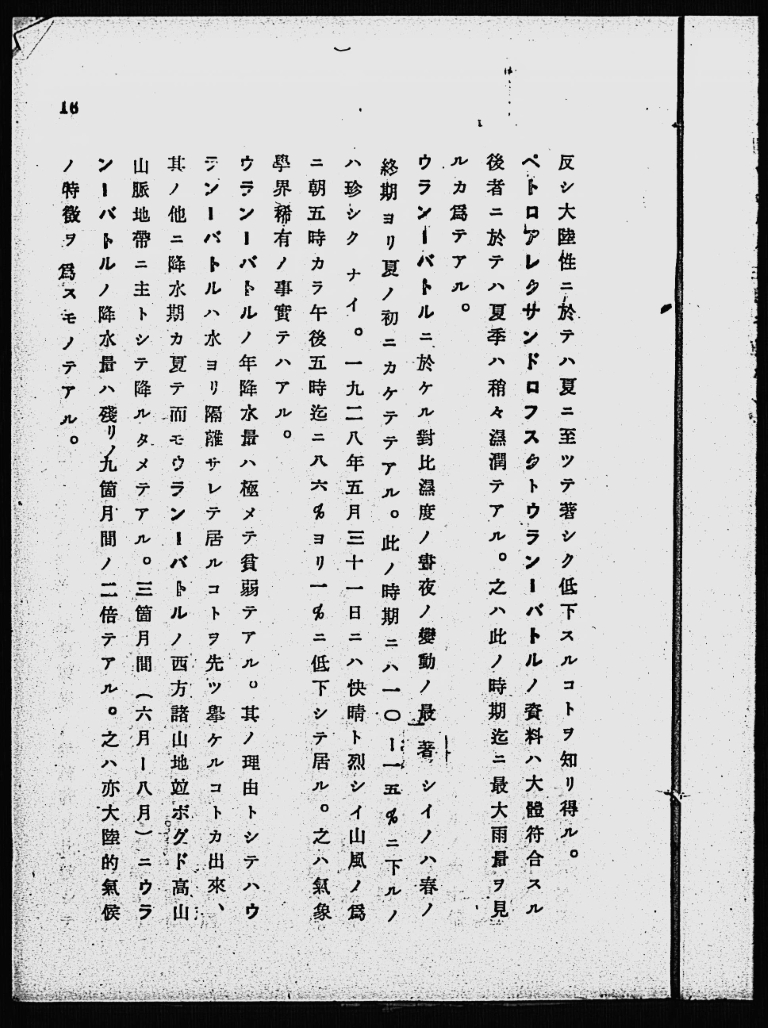 反シ大陸性ニ於テハ夏ニ至ツテ著シク低下スルコトヲ知リ得ル。
ペトロアレクサンドロフスクトウランーバトルノ資料ハ大體符合スル
後者ニ於テハ夏季ハ稍々濕潤テアル。之ハ此ノ時期迄ニ最大雨量ヲ見
ルカ爲テアル。
ウランーバトルニ於ケル對比濕度ノ晝夜ノ變動ノ最著シイノハ春ノ
終期ヨリ夏ノ初ニカケテテアル。此ノ時期ニハ一〇ー一五%ニ下ルノ
ハ珍シクナイ。一九二八年五月三十一日ニハ快晴ト烈シイ山風ノ爲
ニ朝五時カラ午後五時迄ニ八六%ヨリ一%ニ低下シテ居ル。之ハ氣象
學界稀有ノ事實テハアル。
ウランーバトルノ年降水量ハ極メテ貧弱テアル。其ノ理由トシテハウ
ランーバトルハ水ヨリ隔離サレテ居ルコトヲ先ツ擧ケルコトカ出來、
其ノ他ニ降水期カ夏テ而モウランーバトルノ西方諸山地竝ボグド高山
山脈地帶ニ主トシテ降ルタメテアル。三箇月間(六月ー八月)ニウラ
ンーバトルノ降水量ハ殘リノ九箇月間ノ二倍テアル。之ハ亦大陸的氣候
ノ特徵ヲ爲スモノテアル。
16